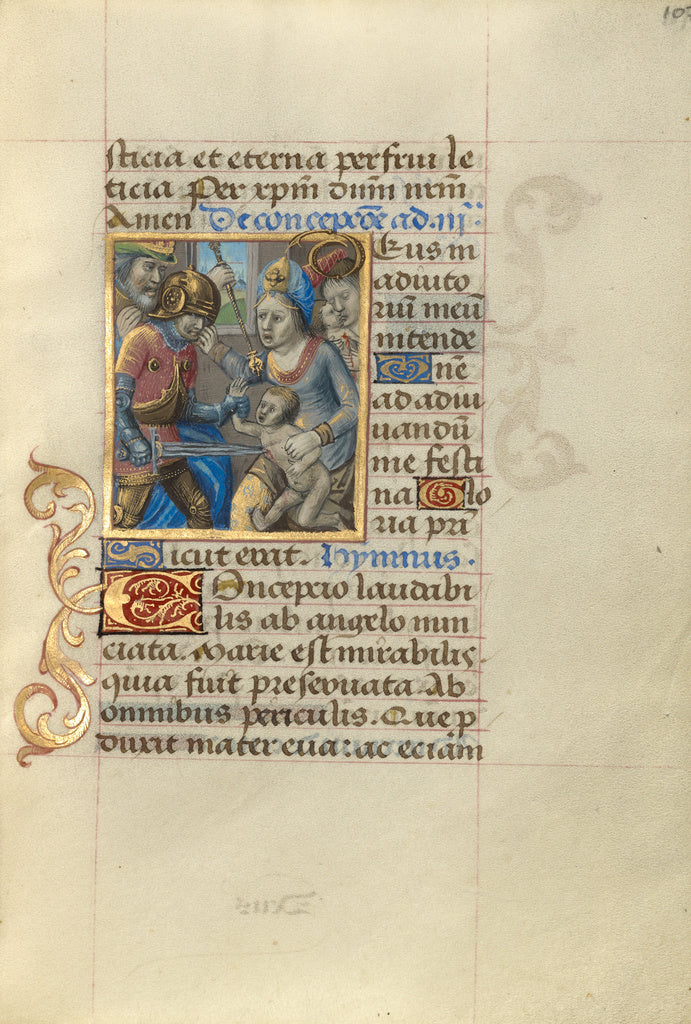 10
sticia et eterna perfrui le
ticia Per xpm dum nrm
Amen De concepcōe ad. iii.
Eus in
adiuto
riū meū
intende
Dñe
ad adiu
uandū
me festi
na Glo
ria pri
Sicut erat. hymnus.
Concepcio laudabi
lis ab angelo nun
ciata. Marie est mirabilis
quia fuit preseruata. Ab
omnibus periculis. Que p
duxit mater eua: ac eciam